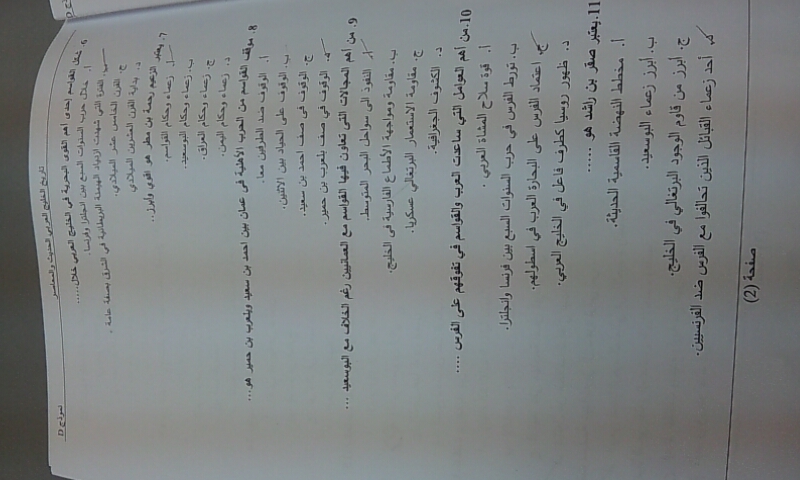 نموذج D
تاريخ الخليج العربي الحديث والمعاصر
6. شكل القواسم إحدى أهم القوى البحرية في الخليج العربي خلال.....
أ. خلال حرب السنوات السبع بين انجلترا وفرنسا.
ب. الفترة التي شهدت ازدياد الهيمنة البريطانية في الشرق بصفة عامة.
ج. القرن الخامس عشر الميلادي.
د. بداية القرن العشرين الميلادي.
7. يعتبر الزعيم رحمة بن مطر هو أقوى وأبرز...
أ. زعماء وحكام القواسم.
ب. زعماء وحكام البوسعيد.
ج. زعماء وحكام العراق.
د. زعماء وحكام اليمن.
8. موقف القواسم من الحرب الأهلية في عمان بين احمد بن سعيد وبلعرب بن حمير هو...
أ. الوقوف ضد الطرفين معا.
ب. الوقوف على الحياد بين الاثنين.
ج. الوقوف في صف احمد بن سعيد.
د. الوقوف في صف بلعرب بن حمير.
9. من أهم المجالات التي تعاون فيها القواسم مع العمانيين رغم الخلاف مع البوسعيد ...
أ. النفوذ الى سواحل البحر المتوسط.
ب. مقاومة ومواجهة الأطماع الفارسية في الخليج.
ج. مقاومة الاستعمار البرتغالي عسكريا.
د. الكشوف الجغرافية.
10. من أهم العوامل التي ساعدت العرب والقواسم في تفوقهم على الفرس ....
أ. قوة سلاح المشاة العربي.
ب. تورط الفرس في حرب السنوات السبع بين فرنسا وانجلترا.
ج. اعتماد الفرس على البحارة العرب في اسطولهم.
د. ظهور روسيا كطرف فاعل في الخليج العربي.
11. يعتبر صقر بن راشد هو ......
أ. مخطط النهضة القاسمية الحديثة.
ب. أبرز زعماء البوسعيد.
ج. أبرز من قاوم الوجود البرتغالي في الخليج.
د. أحد زعماء القبائل الذين تحالفوا مع الفرس ضد الفرنسيين.
صفحة (2)